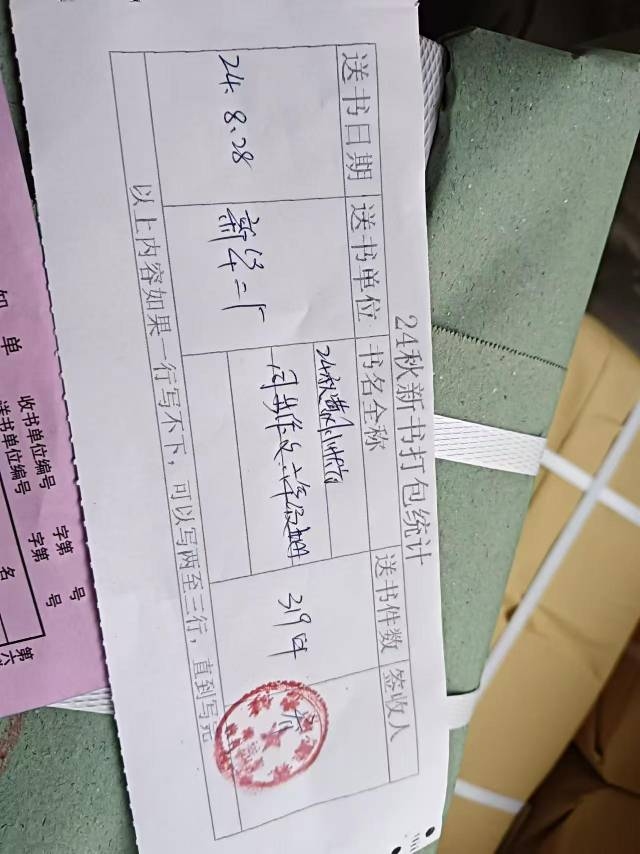 24秋新书打包统计
送书日期 送书单位 书名全称 送书件数 签收人
24.8.28 新华二厂 319件
24秋黄冈小状元
同步作文六年级上册
以上内容如果一行写不下，可以写两至三行，直到写完
知 单
收书单位编号 字第 号
送书单位编号 字第 号
名
第六